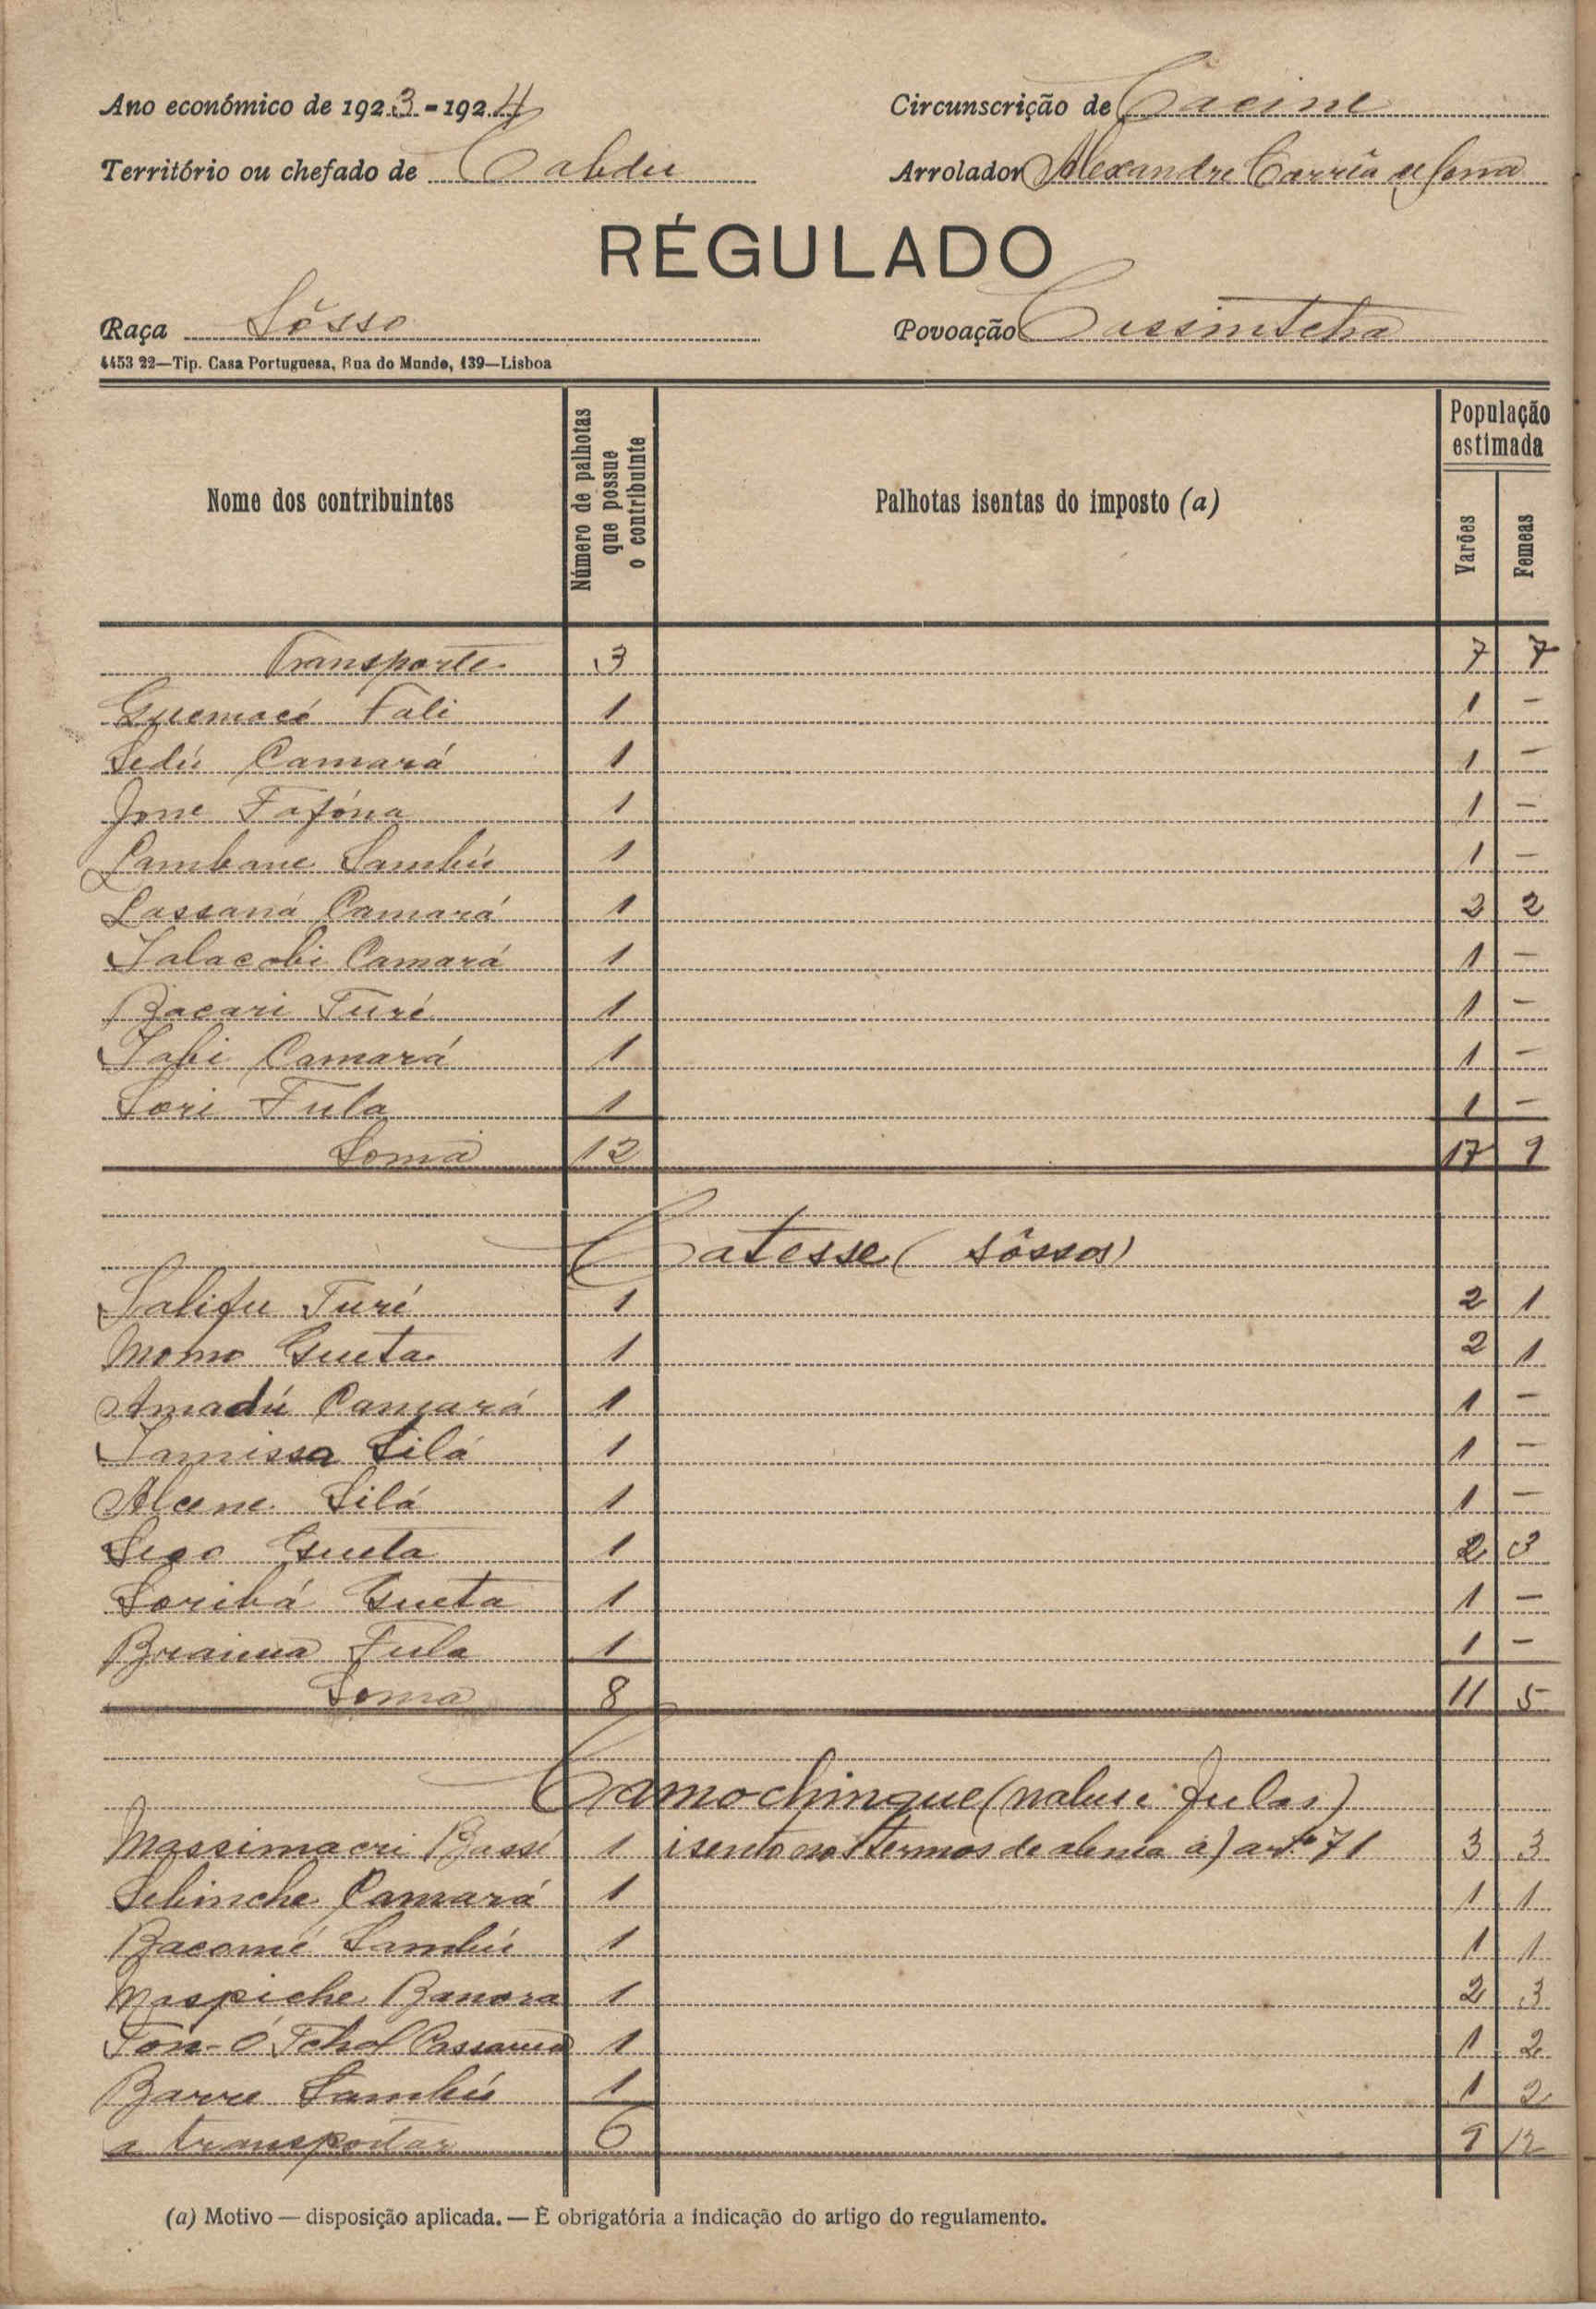 Ano económico de 1923-1924 Circunscrição de Cacine
Território ou chefado de Cabdu Arrolador Alexandre Corrêa de
RÉGULADO
Raça Sôsso Povoação Cassintcha
4453 22—Tip. Casa Portuguesa, Rua do Mundo, 139—Lisboa
Nome dos contribuintes Número de palhotas que possue o contribuinte Palhotas isentas do imposto (a) População estimada
Varões Femeas
Transporte 3 7 7
Guemacé Fali 1 1 -
Sedú Camará 1 1 -
Jome Fafóna 1 1 -
Lambane Sambú 1 1 -
Lassaná Camará 1 2 2
Salacobi Camará 1 1 -
Bacari Turé 1 1 -
Sabi Camará 1 1 -
Sori Fula 1 1 -
Soma 12 17 9
Catesse (Sôssos)
Salifu Turé 1 2 1
Momo Gueta 1 2 1
Amadú Camará 1 1 -
Iamissa Silá 1 1 -
Alcene Silá 1 1 -
Gueta 1 2 3
Soribá Gueta 1 1 -
Braima Fula 1 1 -
Soma 8 11 5
Camochinque (nalus e fulas)
Massimacri Bassi 1 isento nos termos de alinea a) artº 71 3 3
Sebinche Camará 1 1 1
Bacomé Sambú 1 1 1
Maspiche Banora 1 2 3
Ton-Ó Tchol Cassamá 1 1 2
Barre Sambú 1 1 2
a transportar 6 9 12
(a) Motivo — disposição aplicada. — É obrigatória a indicação do artigo do regulamento.